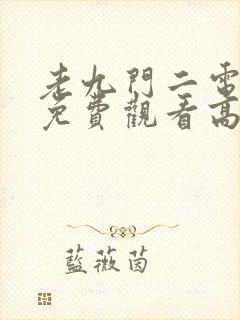 老九門二電
免費觀看高
藍薇茵